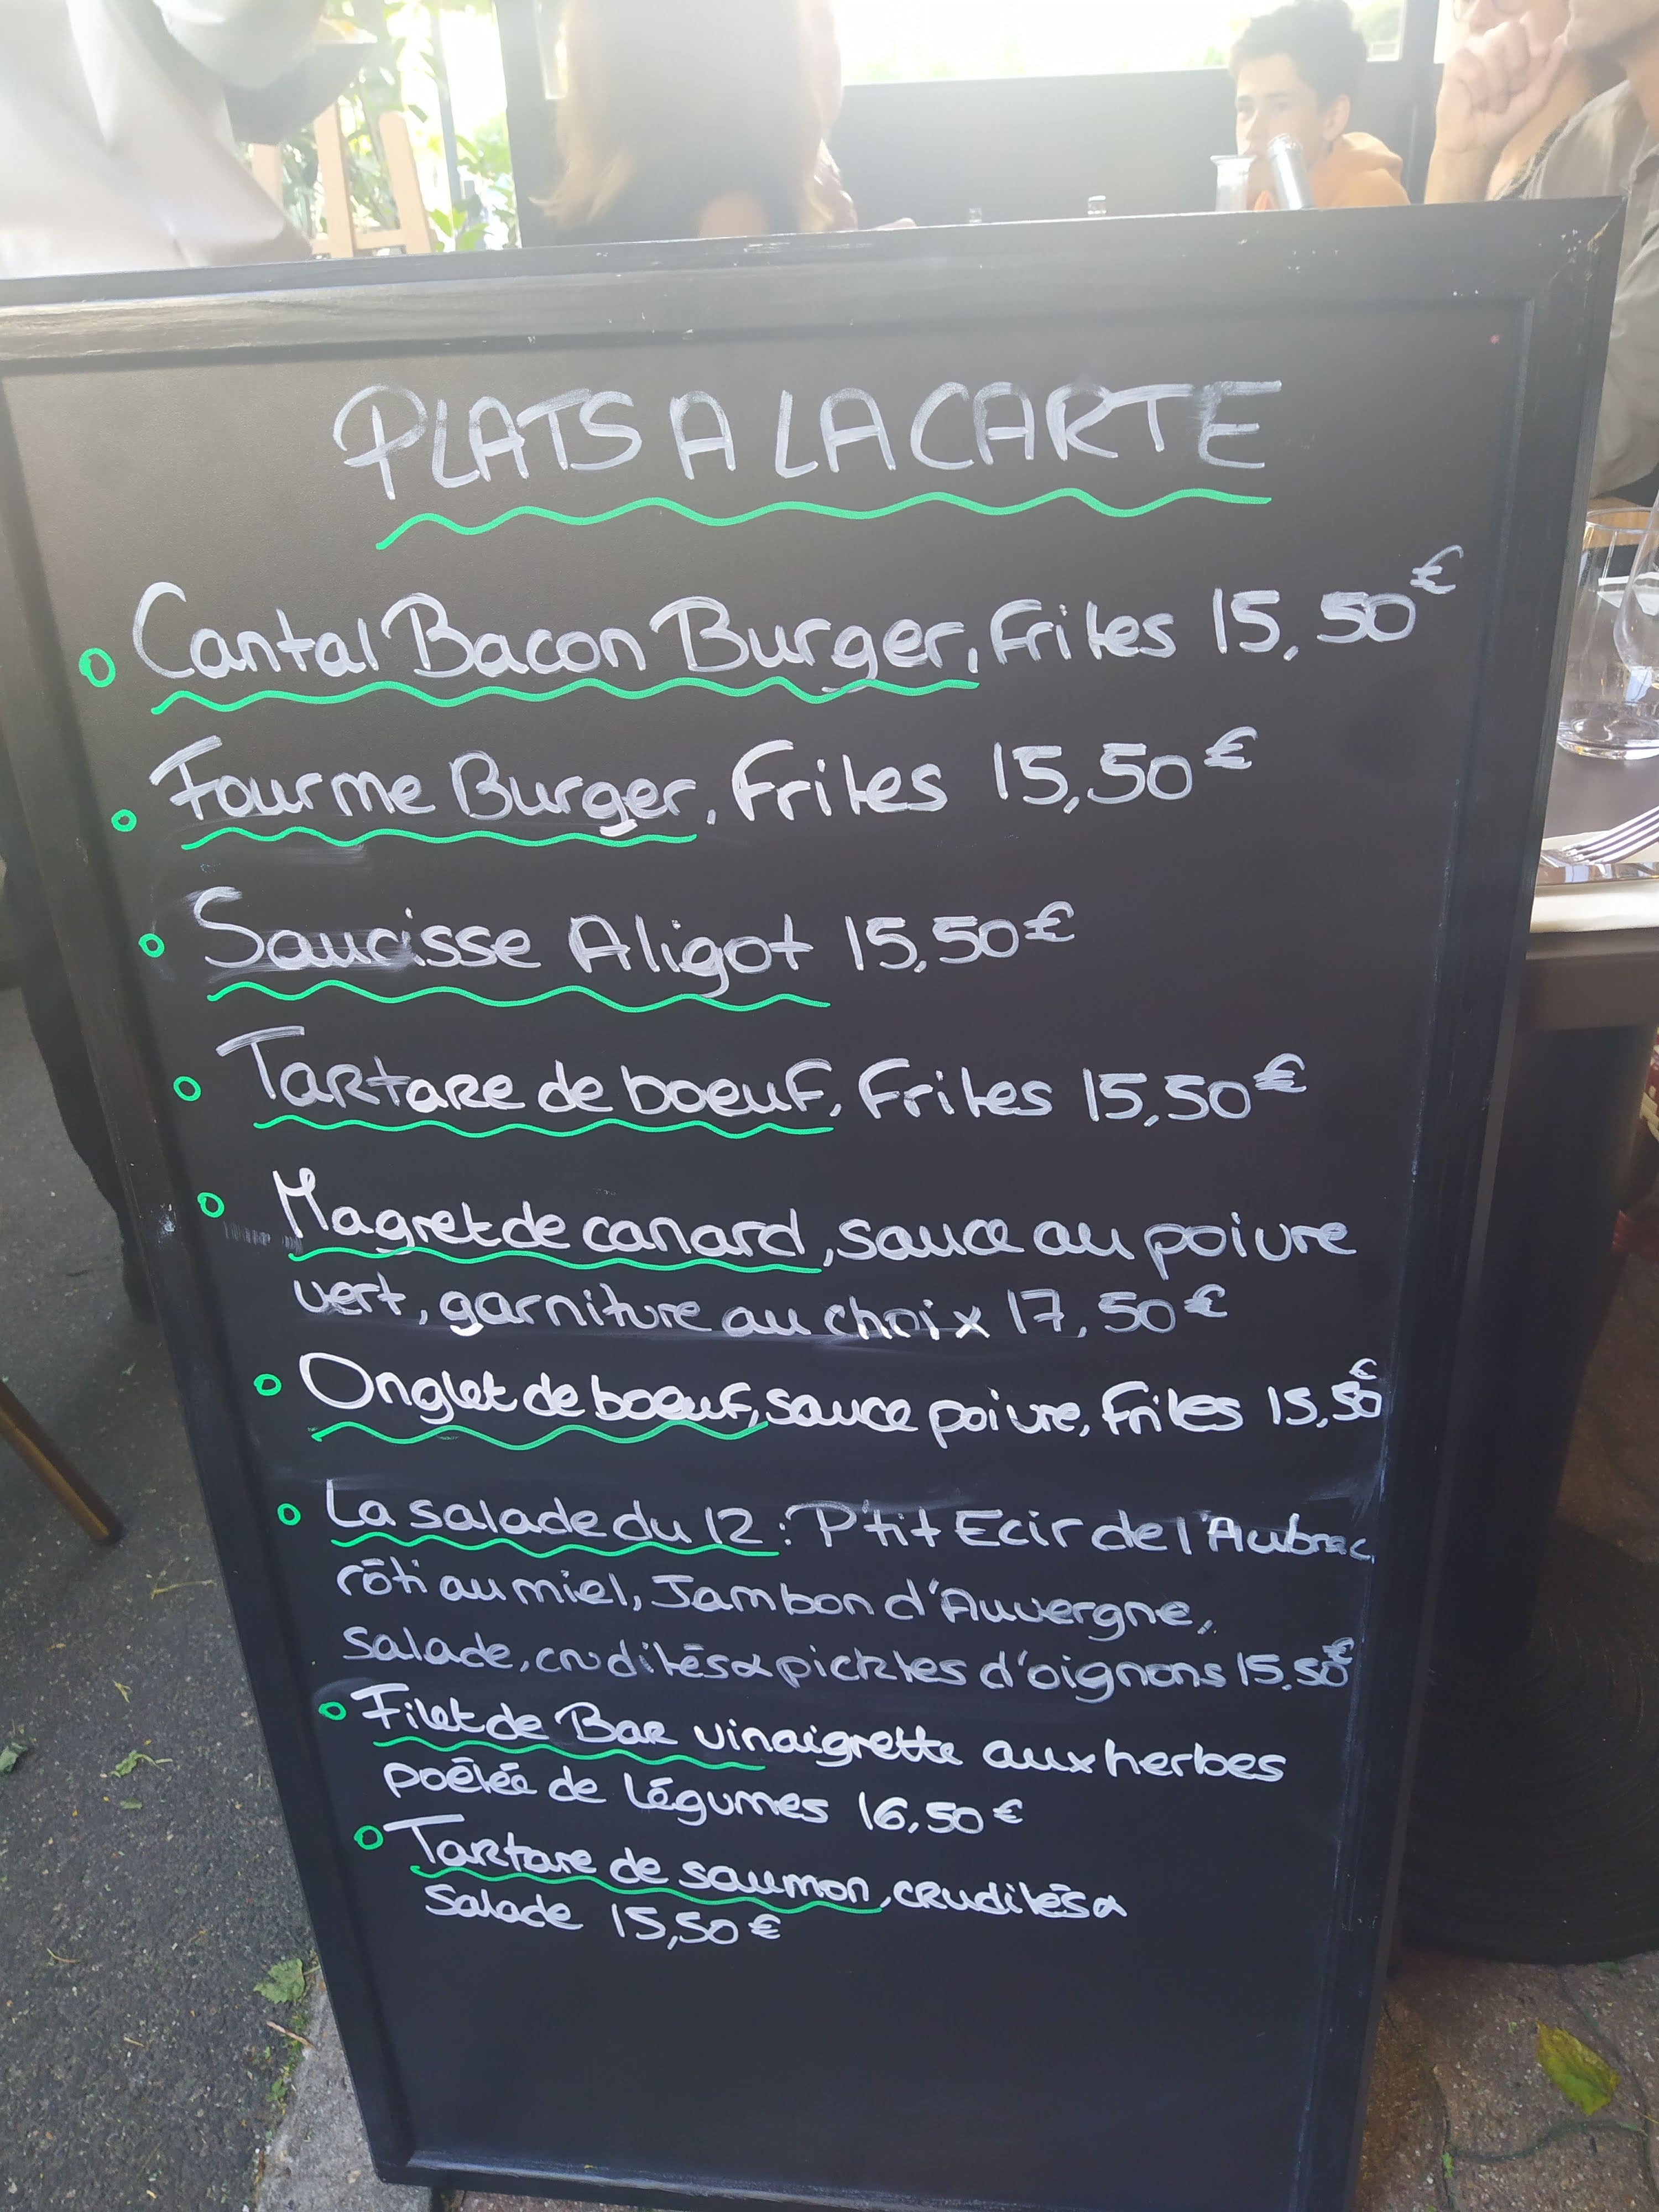 PLATS A LA CARTE
Cantal Bacon Burger, Frites 15,50€
Fourme Burger, Frites 15,50€
Saucisse Aligot 15,50€
Tartare de boeuf, Frites 15,50€
Magret de canard, sauce au poivre
vert, garniture au choix 17,50€
Onglet de boeuf, sauce poivre, Frites 15,50€
La salade du 12 : P'tit Ecir de l'Aubrac
rôti au miel, Jambon d'Auvergne,
salade, crudités & pickles d'oignons 15,50€
Filet de Bar vinaigrette aux herbes
poêlée de légumes 16,50€
Tartare de saumon, crudités &
Salade 15,50€